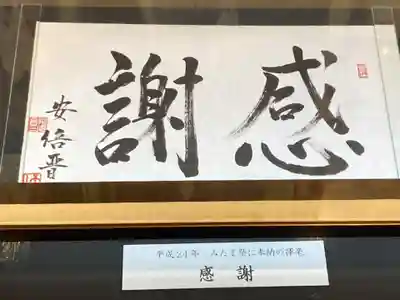 感謝
安倍晋
平成21年 みたま祭に奉納の揮毫
感 謝